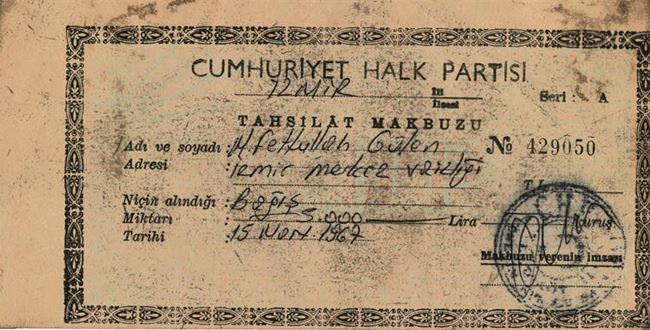 CUMHURİYET HALK PARTİSİ
İZMİR İli
İlçesi
Seri : A
TAHSİLÂT MAKBUZU
Adı ve soyadı : M. Fettullah Gülen
№ 429050
Adresi : izmir merkez vaizliği
T. L.
Niçin alındığı : Bağış
Miktarı : 5.000 Lira Kuruş.
Tarihi : 15 1967
Makbuzu verenin imzası